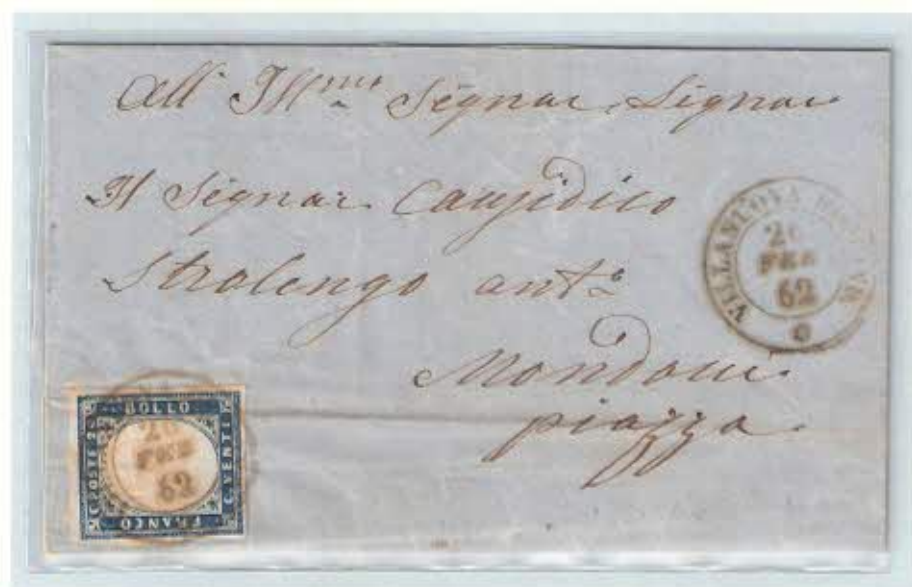 All' Ill.mo Signor Signor
Il Signor Causidico
Stralengo ant.o
Mondovi
piazza
VILLANOVA
2
FEB
62
BOLLO
C. POSTE 2
C. VENTI
FRANCO
FEB
62